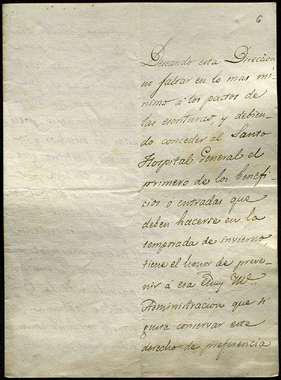 6
Deseando esta Direccion
no faltar en lo mas mi-
nimo á los pactos de
las escrituras, y debien-
do conceder al Santo
Hospital General el
primero de los benefi-
cios o entradas que
deben hacerse en la
temporada de invierno
tiene el honor de preve-
nir á esa Muy Ite.
Administracion que si
gusta conservar este
derecho de preferencia